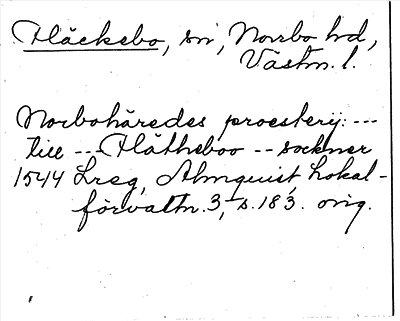 Fläckebo, sn, Norrbo hd,
Västm. l.
Norbohäredes proestery: ---
till --- Fläkheboo -- sockner
1544 Lreg, Almquist, Lokal-
förvaltn. 3, s. 183. orig.